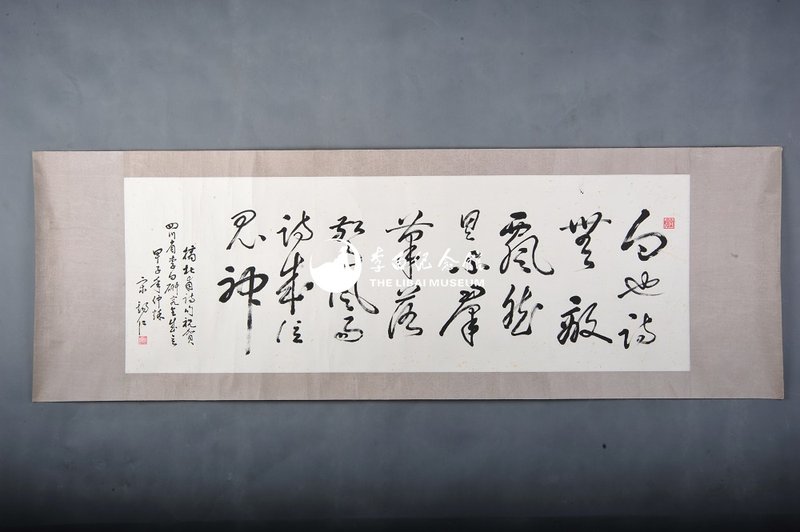 白也诗
無敵
飄然
思不羣
筆落
驚風雨
诗成泣
鬼神
摘杜甫诗句祝贺
四川省李白研究会成立
甲子年仲秋
李白纪念馆
THE LIBAI MUSEUM